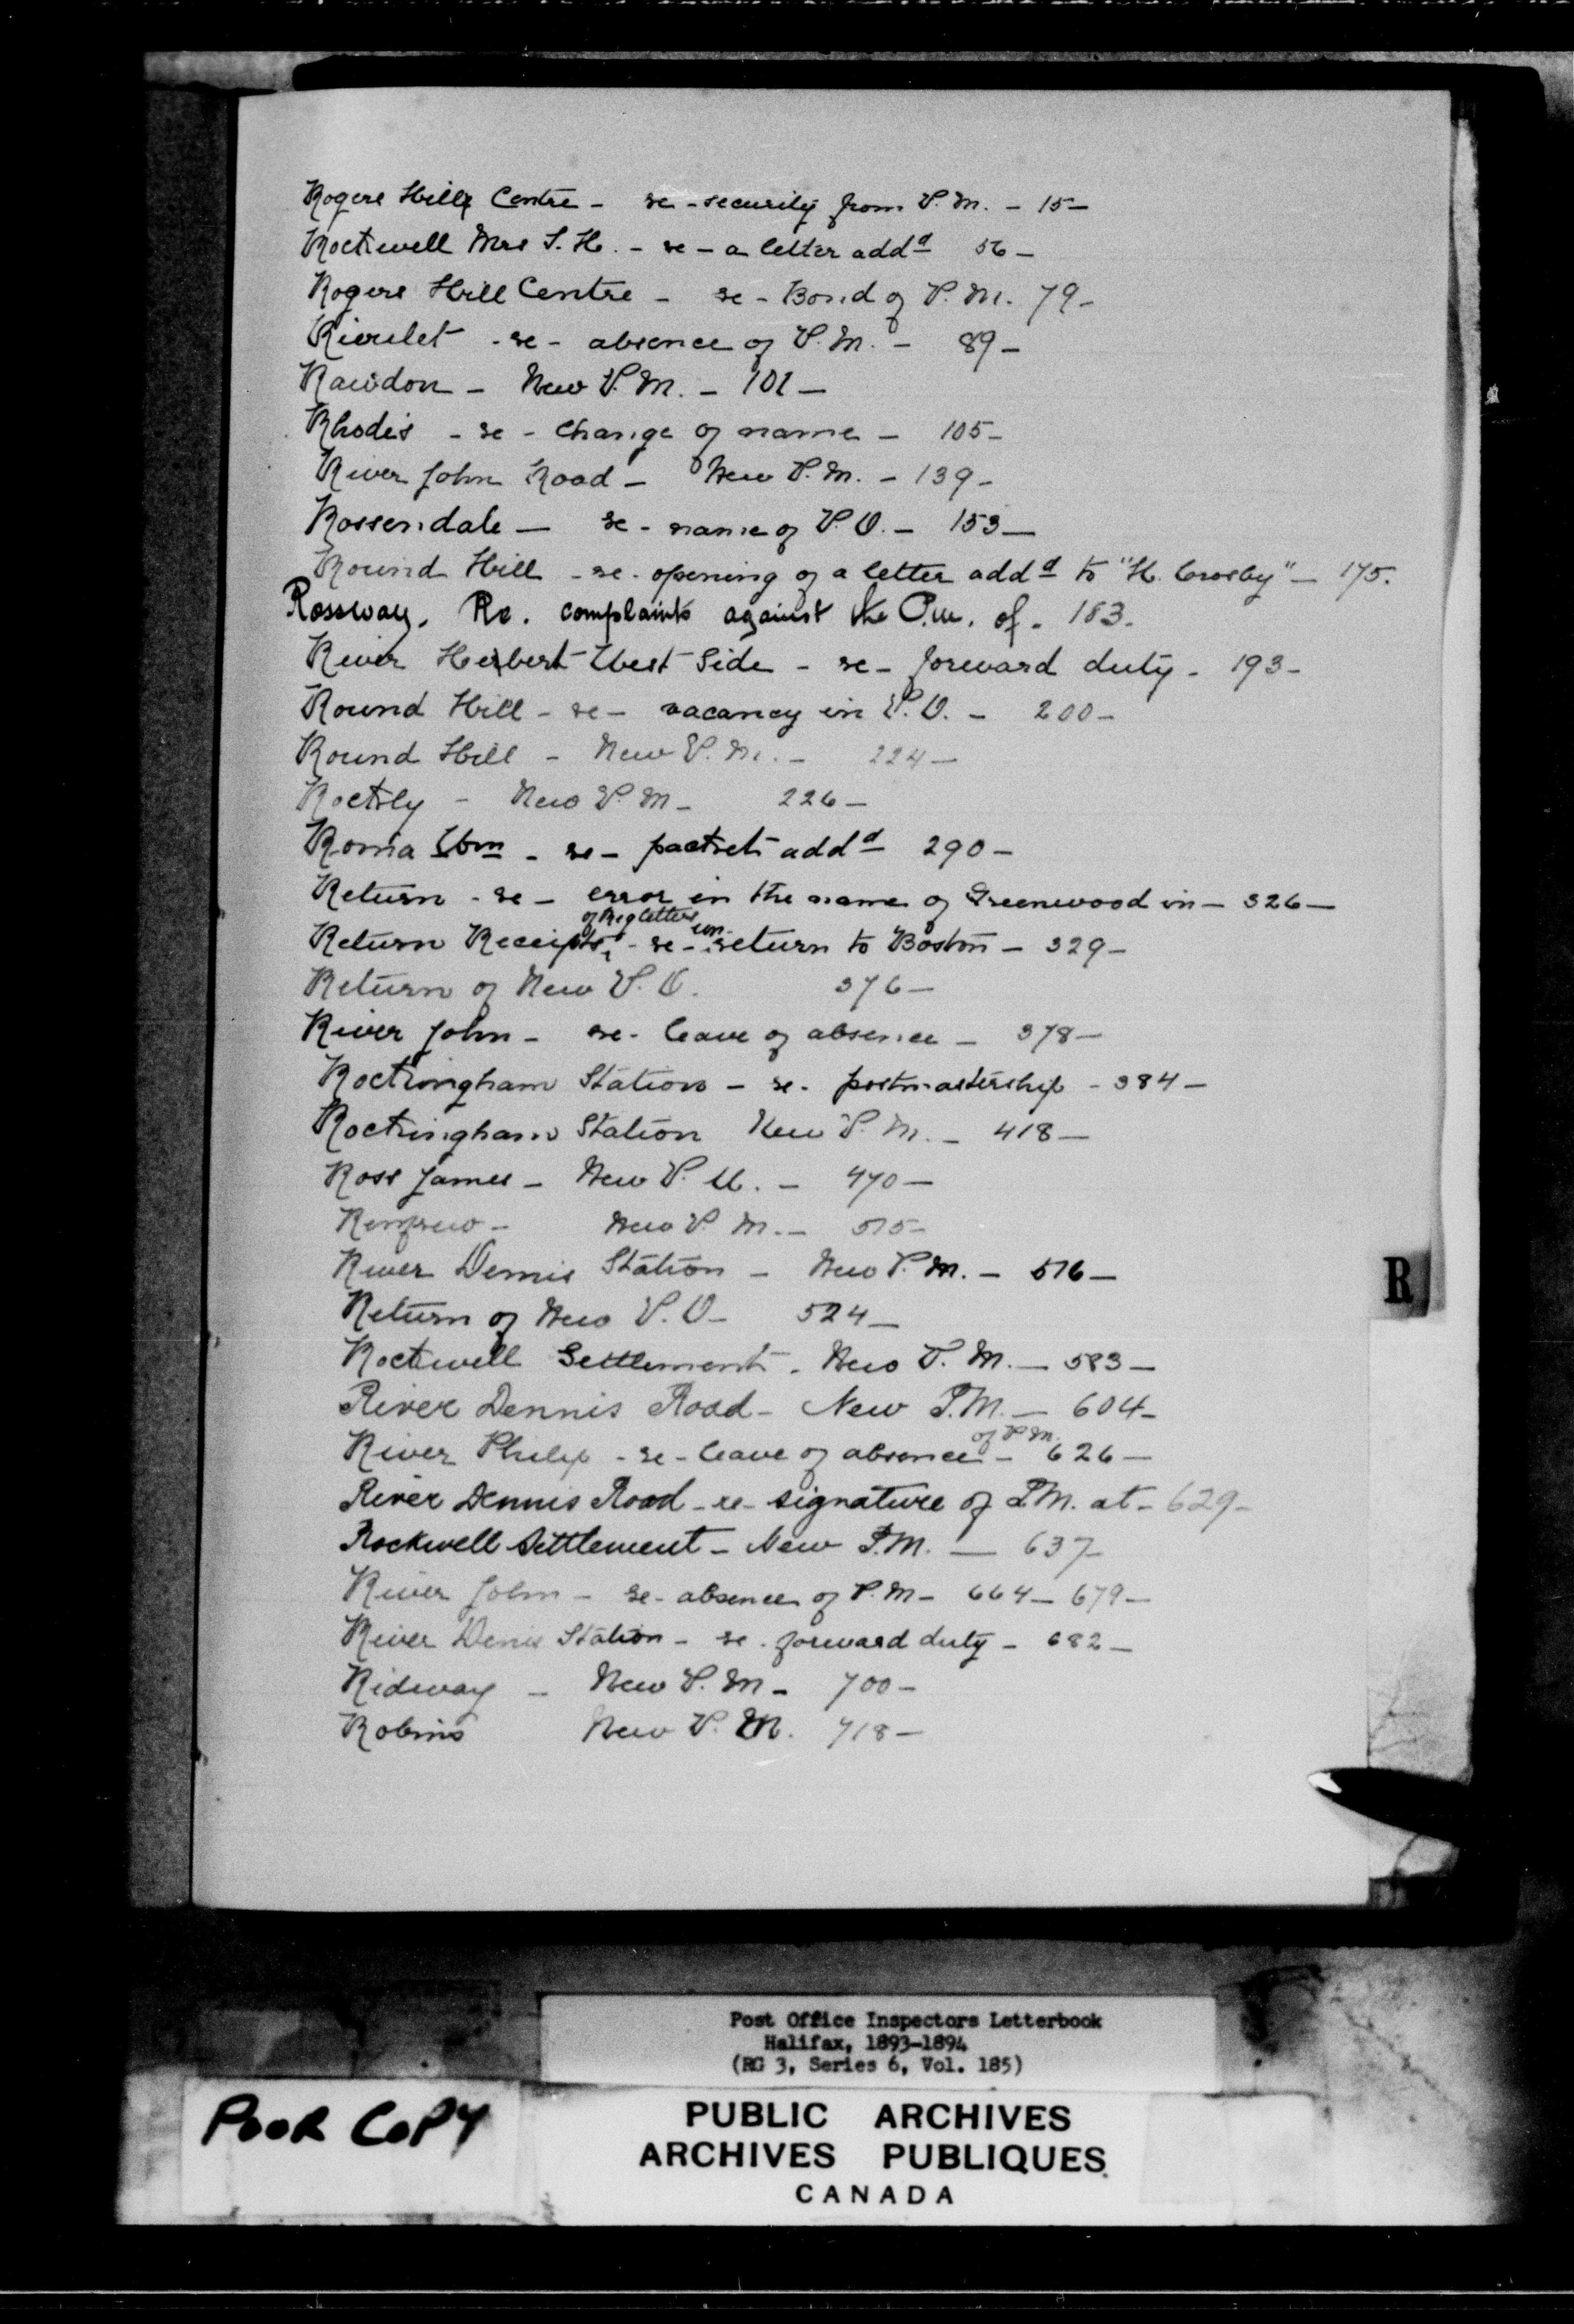 Rogers Hill Centre - re - security from P.M. - 15 -
Rockwell Mrs S. H. - re - a letter addd 56 -
Rogers Hill Centre - re - Bond of P.M. 79 -
Rivulet - re - absence of P.M. - 89 -
Rawdon - New P.M. - 101 -
Rhodes - re - change of name - 105 -
River John Road - New P.M. - 139 -
Rossendale - re - name of P.O. - 153 -
Round Hill - re - opening of a letter addd to "H. Crosby" - 175.
Rossway. Re. complaints against the P.M. of - 183.
River Herbert West Side - re - forward duty - 193 -
Round Hill - re - vacancy in P.O. - 200 -
Round Hill - New P.M. - 224 -
Rockly - New P.M - 226 -
Roma Wm - re - packet addd 290 -
Return - re - error in the name of Greenwood in - 326 -
of Reg letters un-
Return Receipts, - re - return to Boston - 329 -
Return of New P.O. 376 -
River John - re - leave of absence - 378 -
Rockingham Station - re - postmastership - 384 -
Rockingham Station New P.M. - 418 -
Ross James - New P.M. - 470 -
Renfrew - New P.M. - 515 -
River Dennis Station - New P.M. - 516 -
Return of New P.O - 524 -
Rockwell Settlement - New P.M. - 583 -
River Dennis Road - New P.M. - 604 -
of P.M.
River Philip - re - leave of absence - 626 -
River Dennis Road - re - signature of P.M. at - 629 -
Rockwell Settlement - New P.M. - 637 -
River John - re - absence of P.M - 664 - 679 -
River Denis Station - re - forward duty - 682 -
Ridway - New P.M - 700 -
Robins New P.M. 718 -
R
Post Office Inspectors Letterbook
Halifax, 1893-1894
(RG 3, Series 6, Vol. 185)
POOR COPY
PUBLIC ARCHIVES
ARCHIVES PUBLIQUES
CANADA